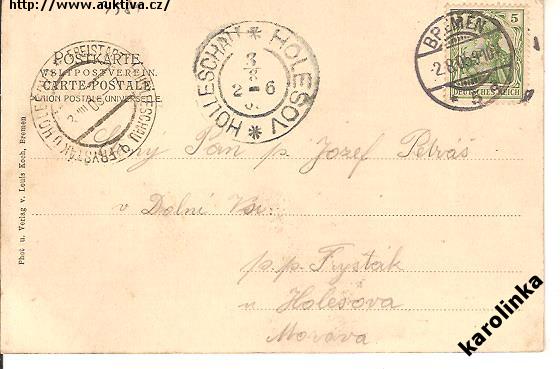 http://www.auktiva.cz
POSTKARTE
WELTPOSTVEREIN.
CARTE POSTALE
UNION POSTALE UNIVERSELLE.
HOLLESCHAU * HOLEŠOV *
3
8
2-6
BREMEN
5
DEUTSCHES REICH
Pán p. Jozef Petráš
v Dolní Vsi
p.p. Fryšták
u Holešova
Morava
Phot u. Verlag v. Louis Koch, Bremen
karolinka